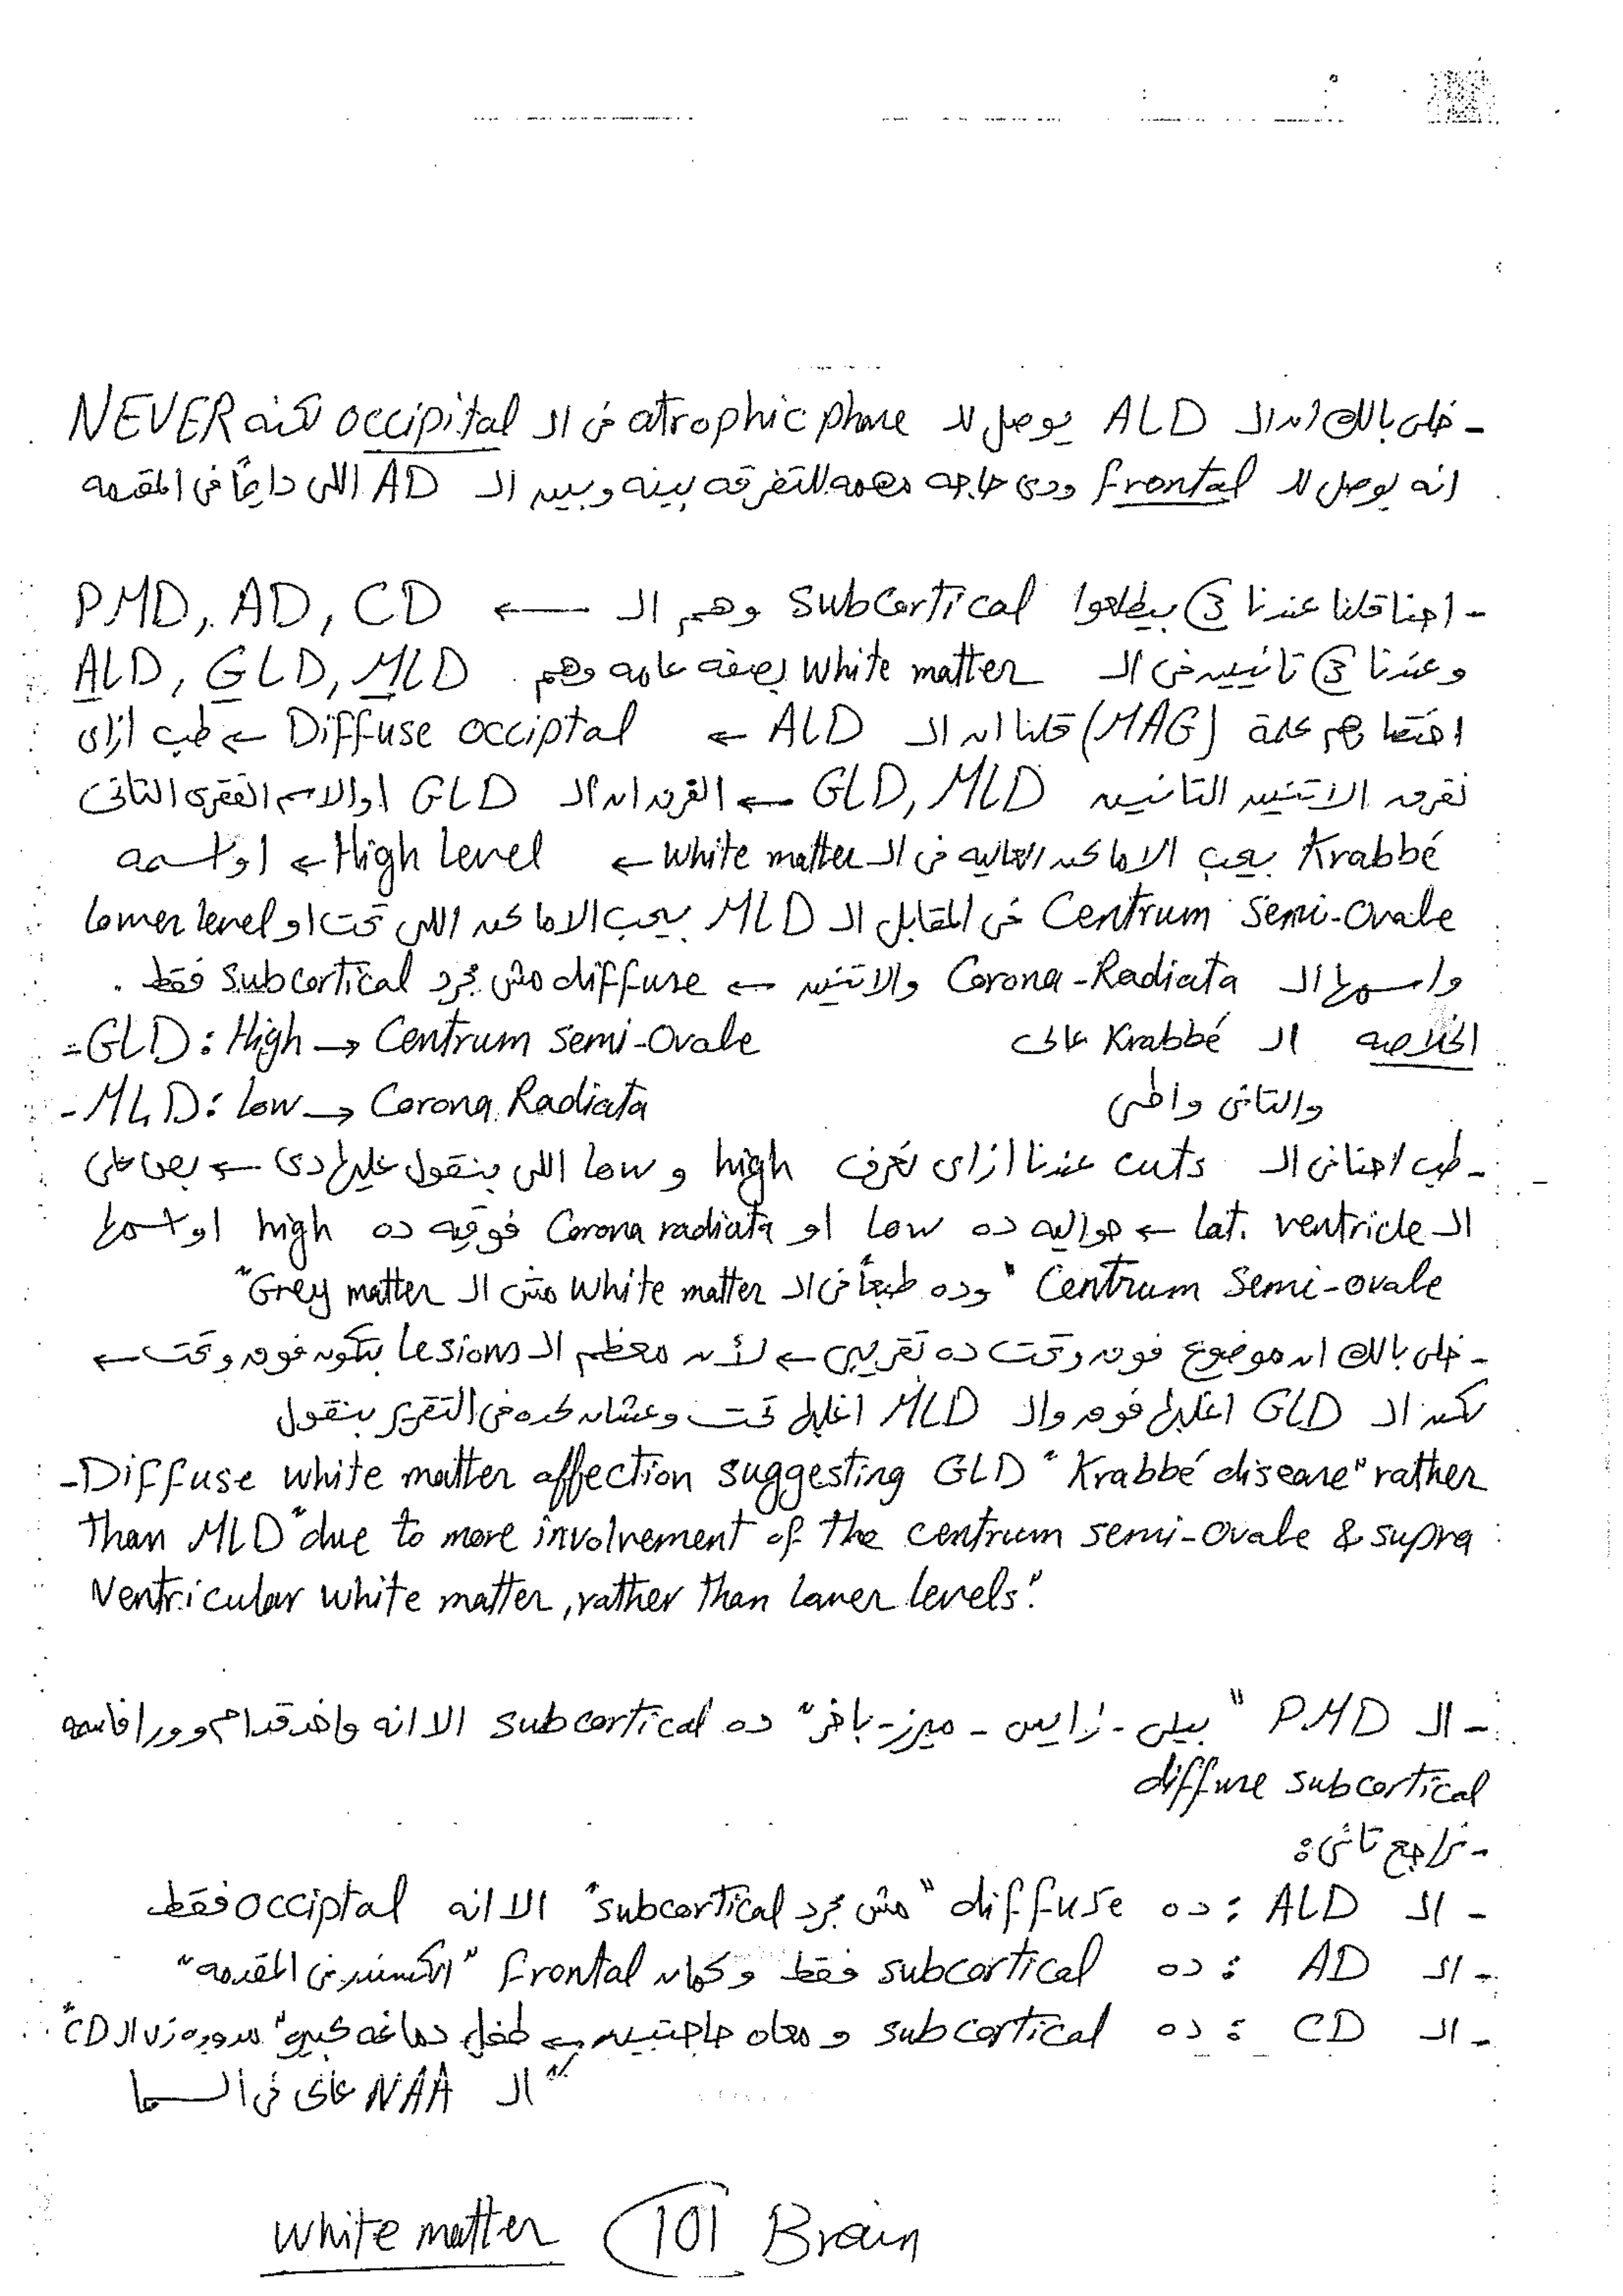 - خلى بالك ان الـ ALD يوصل للـ atrophic phase فى الـ occipital لكنه NEVER
انه يوصل للـ frontal ودى حاجه مهمه للتفرقه بينه وبين الـ AD اللى دايماً فى المقدمه
- احنا قلنا عندنا 3 بيطلعوا subcortical وهم الـ ← PMD, AD, CD
وعندنا 3 تانيين فى الـ white matter بصفه عامه وهم ALD, GLD, MLD
اختصارهم كلمة (MAG) قلنا ان الـ ALD ← Diffuse occiptal ← طب ازاى
نفرق الاتنين التانيين GLD, MLD ← الفرق ان الـ GLD او الاسم الفقرى التانى
Krabbé يحب الاماكن العاليه فى الـ white matter ← High level ← او اسمه
Centrum Semi-Ovale فى المقابل الـ MLD يحب الاماكن اللى تحت او lower level
واسمها الـ Corona-Radiata والاتنين ← diffuse مش مجرد subcortical فقط .
الخلاصه الـ Krabbé عالى =GLD: High → Centrum Semi-Ovale
والتانى واطى - MLD: Low → Corona Radiata
- طب احنا فى الـ cuts عندنا ازاى نعرف high و low اللى بنقول عليها دى ← بص على
الـ lat. ventricle ← حواليه ده low او Corona radiata فوقيه ده high او اسمها
Centrum Semi-ovale "وده طبعاً فى الـ white matter مش الـ Grey matter"
- خلى بالك ان موضوع فوق وتحت ده تقريبى ← لأن معظم الـ Lesions بتكون فوق وتحت ←
لكن الـ GLD اغلبها فوق والـ MLD اغلبها تحت وعشان كده فى التقرير بنقول
-Diffuse white matter affection suggesting GLD "Krabbé disease" rather
than MLD "due to more involvement of the centrum semi-ovale & supra
Ventricular white matter, rather than lower levels".
- الـ PMD "بيلى - زايس - ميرز - باخر" ده subcortical الا انه واخد قدام وورا فاسمه
diffuse subcortical
- نراجع تانى:
- الـ ALD : ده diffuse "مش مجرد subcortical" الا انه occiptal فقط
- الـ AD : ده subcortical فقط وكمان frontal "الكسندر فى المقدمه"
- الـ CD : ده subcortical و معاه حاجتين ← طفل دماغه كبيره "مدوره زى الـ CD"
"الـ NAA عالى فى السما
white matter 101 Brain